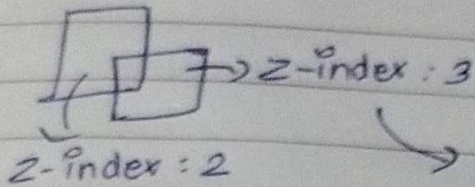 z-index : 3
z-index : 2